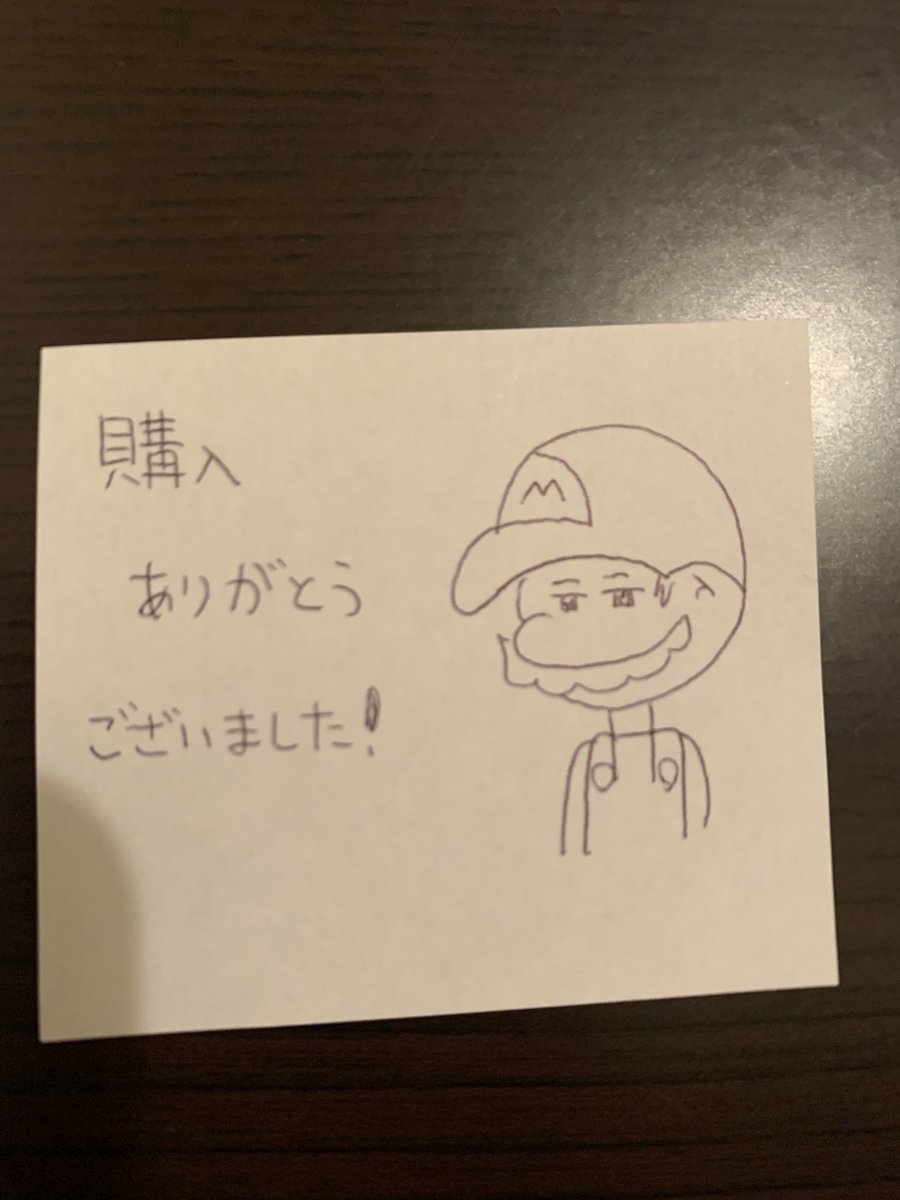 購入
ありがとう
ございました!
M